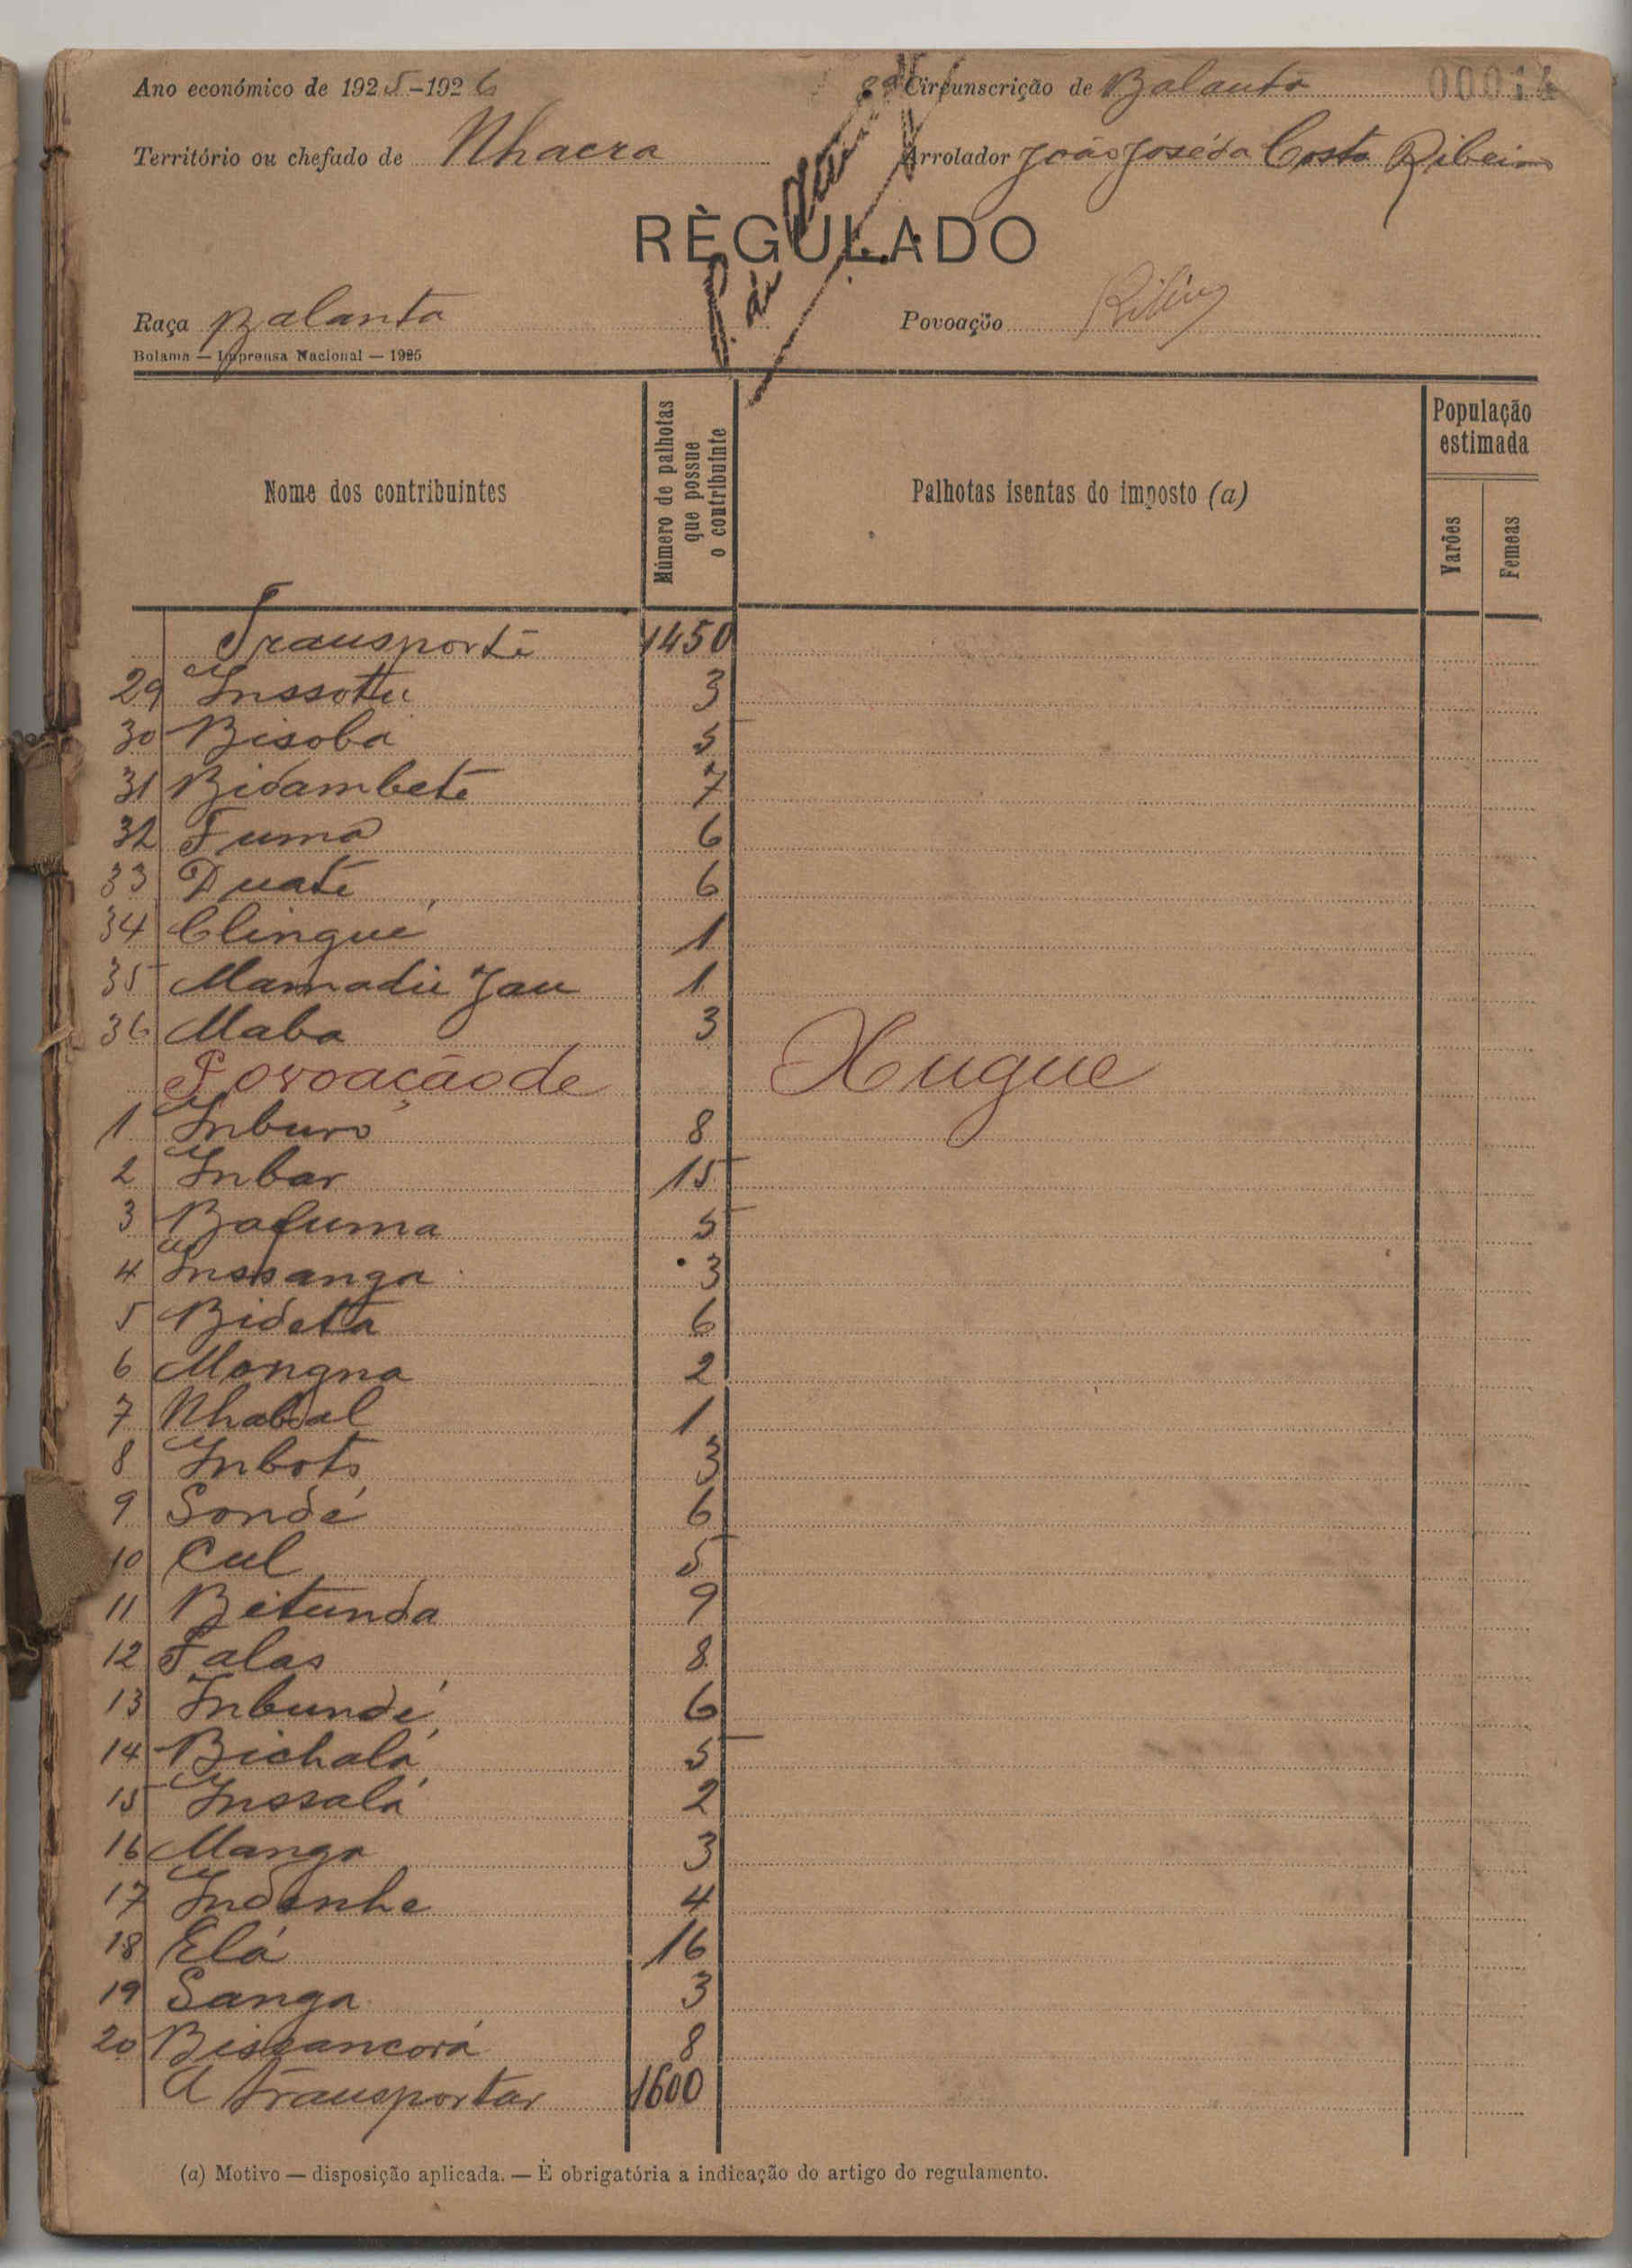 Ano económico de 1925-1926
Circunscrição de Balanta 00014
Território ou chefado de Nhacra
Arrolador João José da Costa Ribeiro
RÈGULADO
Raça Balanta
Povoação
Bolama — Imprensa Nacional — 1925
Nome dos contribuintes
Número de palhotas que possue o contribuinte
Palhotas isentas do imposto (a)
População estimada
Varões
Femeas
Transporte 1450
29 Inssottu 3
30 Bisoba 5
31 Bidambete 7
32 Fuma 6
33 Duate 6
34 Clingué 1
35 Mamadú Jau 1
36 Maba 3
Povoação de Xugue
1 Inburo 8
2 Inbar 15
3 Bafuma 5
4 Inssanga 3
5 Bideta 6
6 Mongna 2
7 Nhabal 1
8 Inboto 3
9 Sondé 6
10 Cul 5
11 Bitunda 9
12 Falas 8
13 Inbundé 6
14 Bichalá 5
15 Inssalá 2
16 Manga 3
17 Indenhe 4
18 Elá 16
19 Sanga 3
20 Bissancorá 8
A transportar 1600
(a) Motivo — disposição aplicada. — È obrigatória a indicação do artigo do regulamento.